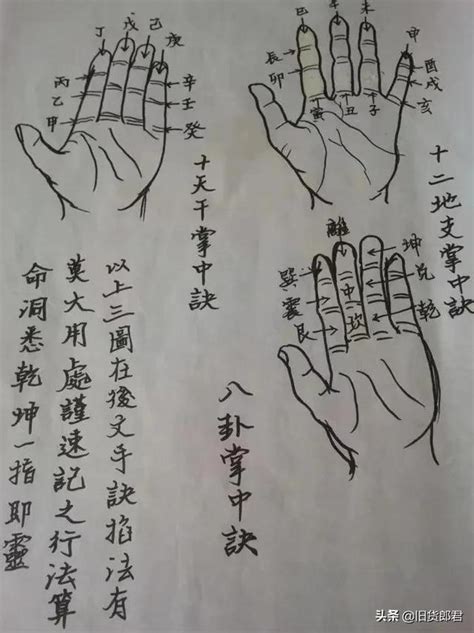 丁 戊 己 庚
丙 辛
乙 壬
甲 癸
十天干掌中訣
巳 午 未 申
辰 酉
卯 戌
寅 丑 子 亥
十二地支掌中訣
離 坤
巽 兌
震 中 乾
艮 坎
八卦掌中訣
以上三圖在後文手訣掐法有
莫大用處謹速記之行法算
命洞悉乾坤一指即靈
头条 @旧货郎君